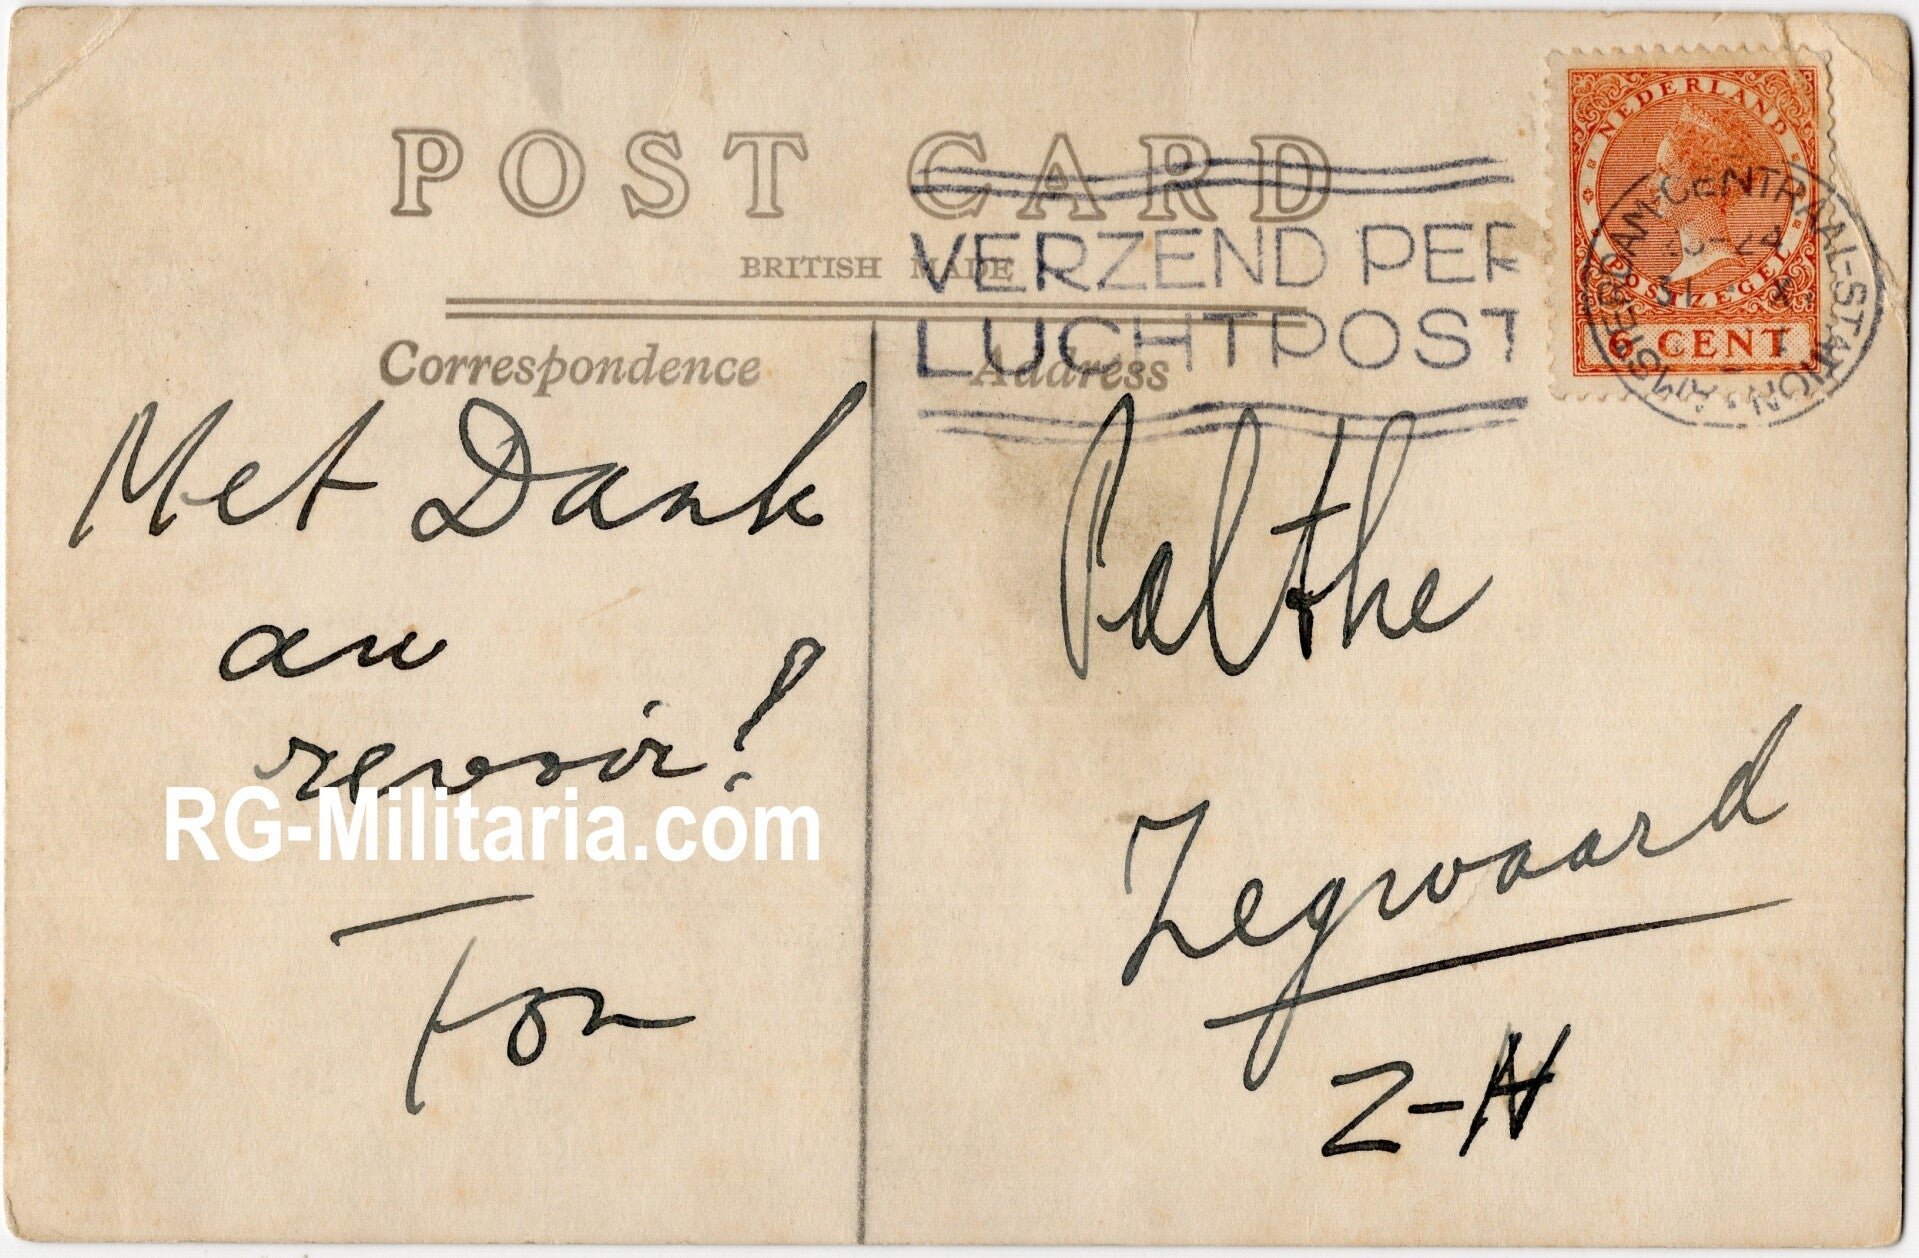 POST CARD
BRITISH MADE
VERZEND PER
LUCHTPOST
NEDERLAND
POSTZEGEL
6 CENT
AMSTERDAM-CENTRAAL-STATION
20-24
31 X
Correspondence
Address
Met Dank
au
revoir!
Ton
Palthe
Zegwaard
Z-H
RG-Militaria.com